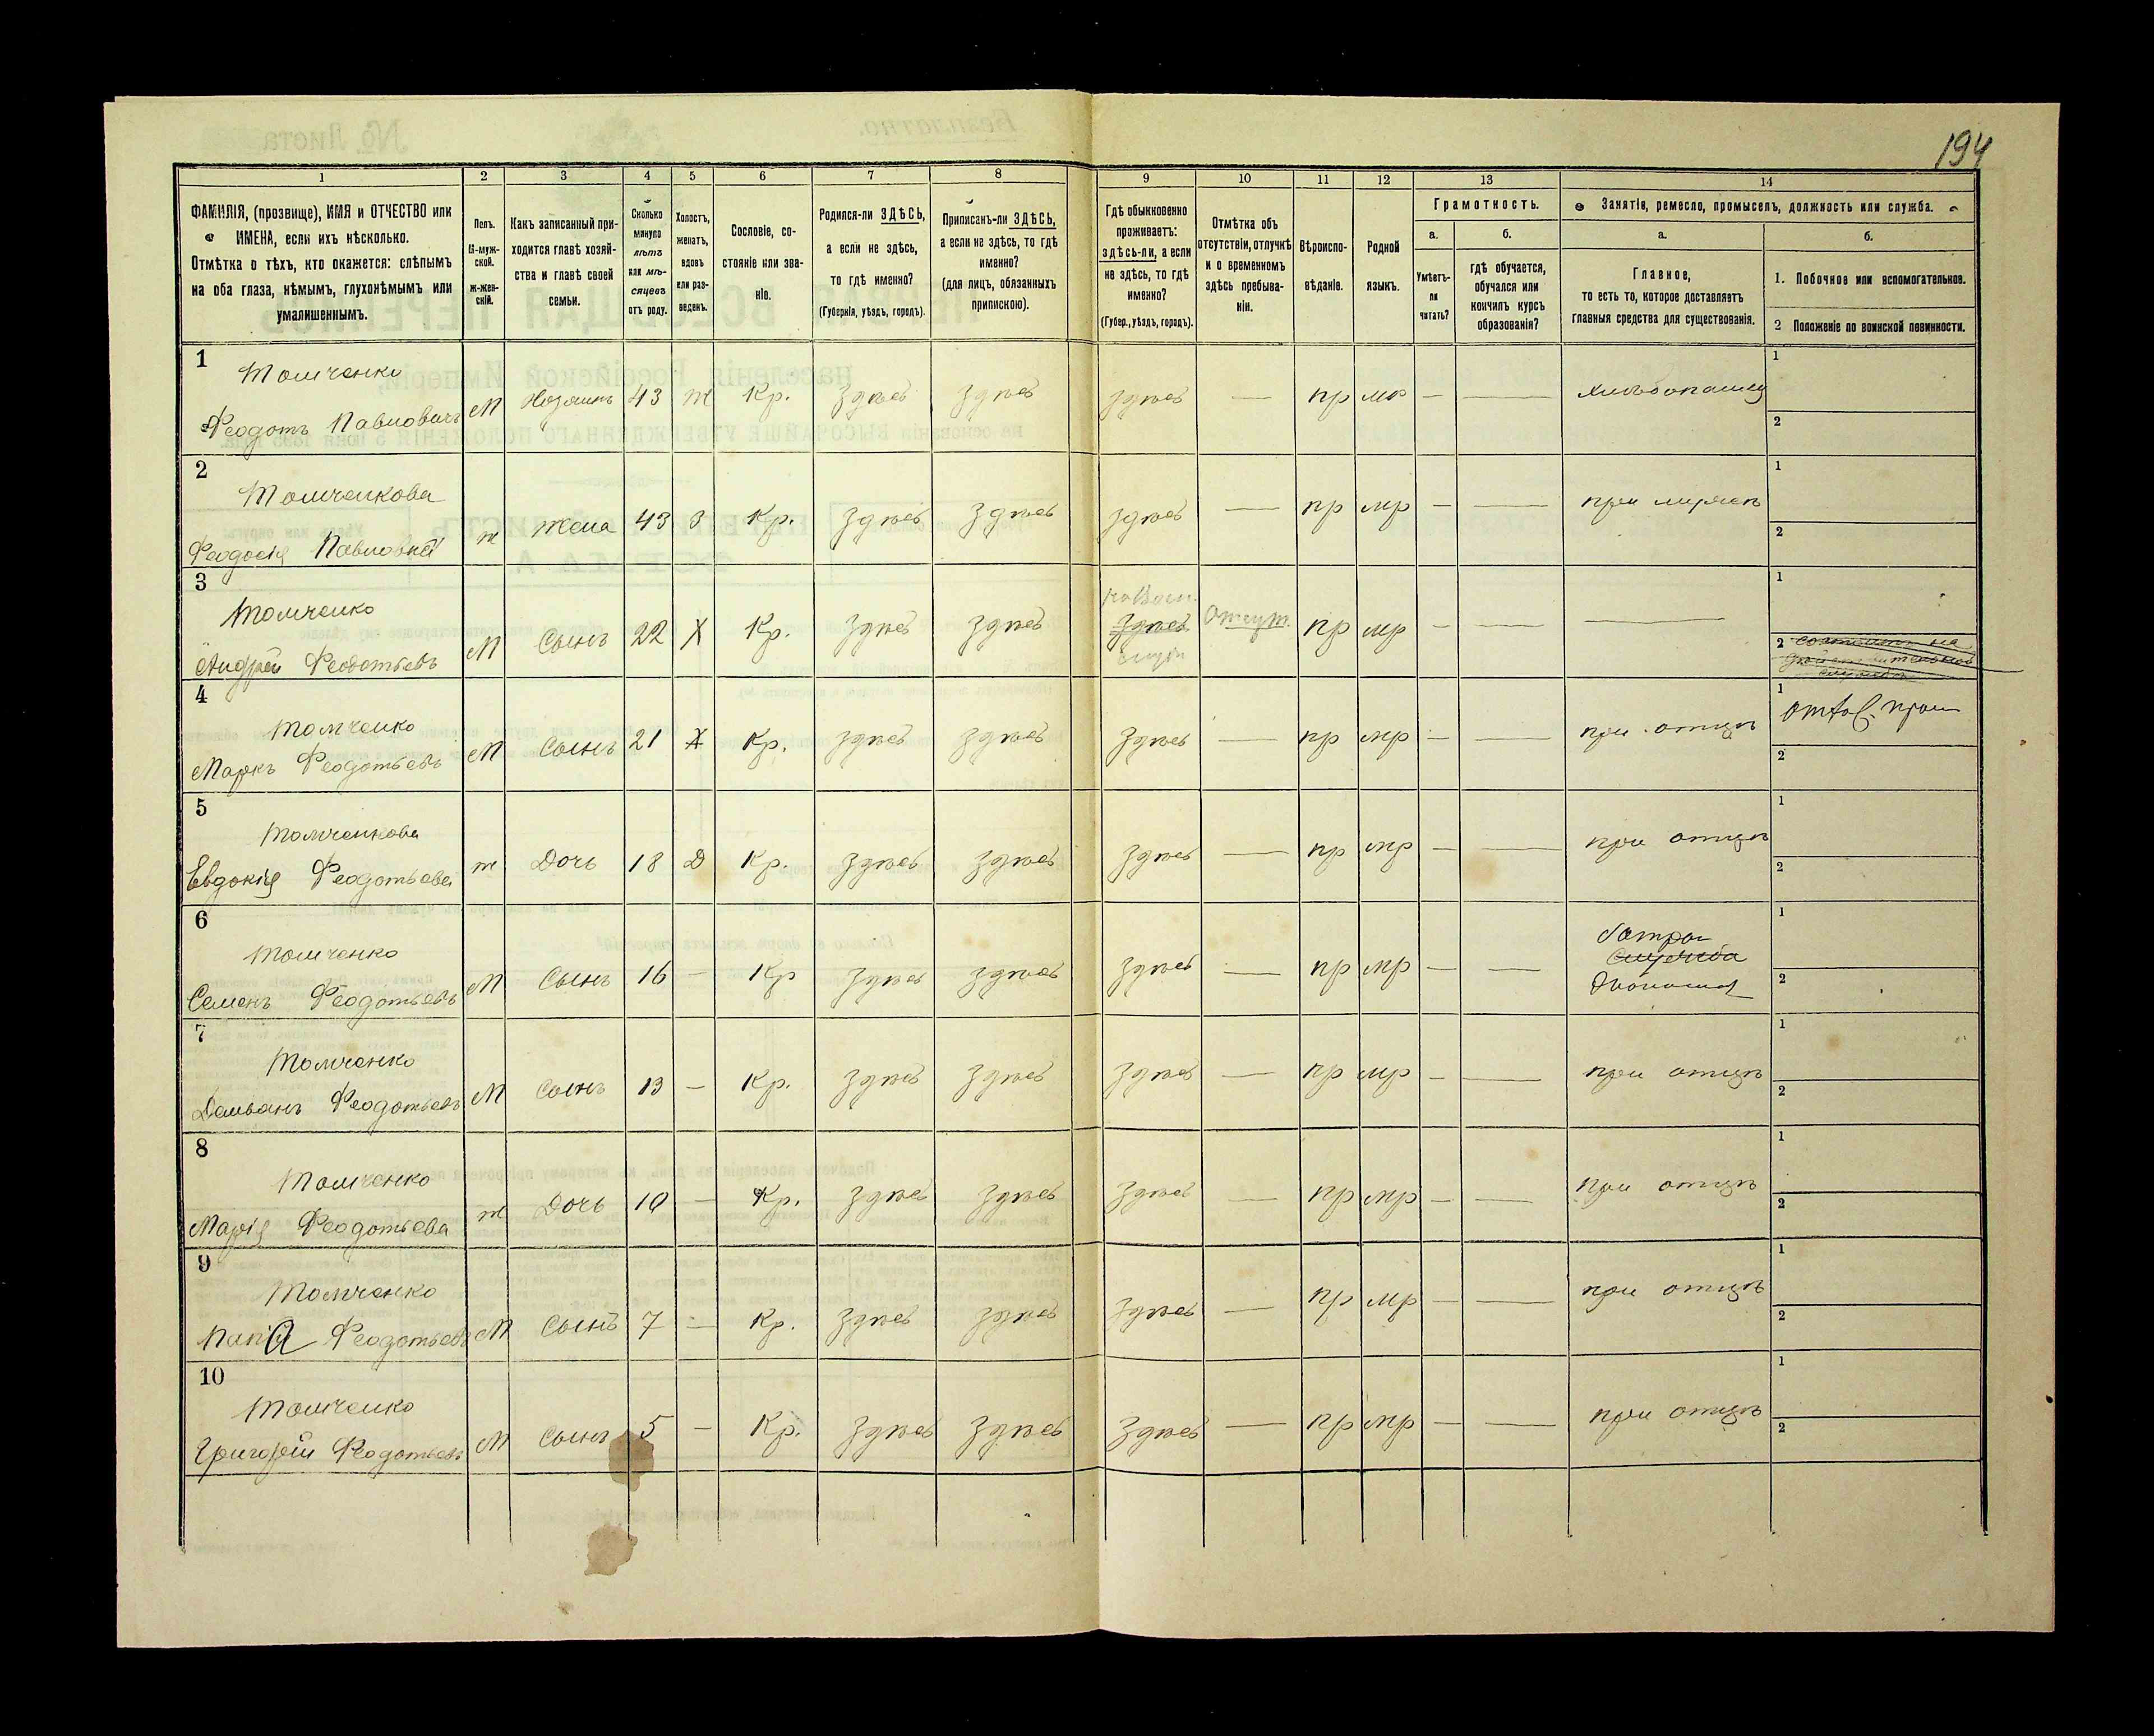 194
1 2 3 4 5 6 7 8 9 10 11 12 13 14
ФАМИЛІЯ, (прозвище), ИМЯ и ОТЧЕСТВО или
ИМЕНА, если ихъ нѣсколько.
Отмѣтка о тѣхъ, кто окажется: слѣпымъ
на оба глаза, нѣмымъ, глухонѣмымъ или
умалишеннымъ.
Полъ.
М-муж-
ской.
ж-жен-
скій.
Какъ записанный при-
ходится главѣ хозяй-
ства и главѣ своей
семьи.
Сколько
минуло
лѣтъ
или мѣ-
сяцевъ
отъ роду.
Холостъ,
женатъ,
вдовъ
или раз-
веденъ.
Сословіе, со-
стояніе или зва-
ніе.
Родился-ли ЗДѢСЬ,
а если не здѣсь,
то гдѣ именно?
(Губернія, уѣздъ, городъ).
Приписанъ-ли ЗДѢСЬ,
а если не здѣсь, то гдѣ
именно?
(для лицъ, обязанныхъ
припискою).
Гдѣ обыкновенно
проживаетъ:
здѣсь-ли, а если
не здѣсь, то гдѣ
именно?
(Губер., уѣздъ, городъ).
Отмѣтка объ
отсутствіи, отлучкѣ
и о временномъ
здѣсь пребыва-
ніи.
Вѣроиспо-
вѣданіе.
Родной
языкъ.
Грамотность.
а.
Умѣетъ-
ли
читать?
б.
гдѣ обучается,
обучался или
кончилъ курсъ
образованія?
Занятіе, ремесло, промыселъ, должность или служба.
а.
Главное,
то есть то, которое доставляетъ
главныя средства для существованія.
б.
1. Побочное или вспомогательное.
2 Положеніе по воинской повинности.
1 Томченко
Феодотъ Павловичъ М Хозяинъ 43 Ж Кр. Здѣсь Здѣсь Здѣсь — пр мр — — хлѣбопашец 1 2
2 Томченкова
Феодосія Павловна ж жена 43 З Кр. Здѣсь Здѣсь Здѣсь — пр мр — — при мужѣ 1 2
3 Томченко
Андрей Феодотьевъ М Сынъ 22 Х Кр. Здѣсь Здѣсь на Воен. Здѣсь служ Отсут. пр мр — — — 1
2 состоитъ на
дѣйствительной
службѣ
4 Томченко
Маркъ Феодотьевъ М Сынъ 21 Х Кр. Здѣсь Здѣсь Здѣсь — пр мр — — при отцѣ 1 2
5 Томченкова
Евдокія Феодотьева ж Дочь 18 Д Кр. Здѣсь Здѣсь Здѣсь — пр мр — — при отцѣ 1 2
6 Томченко
Семенъ Феодотьевъ М Сынъ 16 — Кр Здѣсь Здѣсь Здѣсь — пр мр — — служба 1 2
7 Томченко
Демьянъ Феодотьевъ М Сынъ 13 — Кр. Здѣсь Здѣсь Здѣсь — пр мр — — при отцѣ 1 2
8 Томченко
Марія Феодотьева ж Дочь 10 — Кр. Здѣсь Здѣсь Здѣсь — пр мр — — при отцѣ 1 2
9 Томченко
Феодотьевъ М Сынъ 7 — Кр. Здѣсь Здѣсь Здѣсь — пр мр — — при отцѣ 1 2
10 Томченко
Григорій Феодотьевъ М Сынъ 5 — Кр. Здѣсь Здѣсь Здѣсь — пр мр — — при отцѣ 1 2